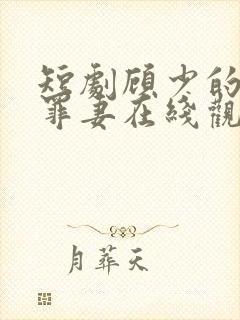 短劇顾少的
罪妻在綫觀
月葬天